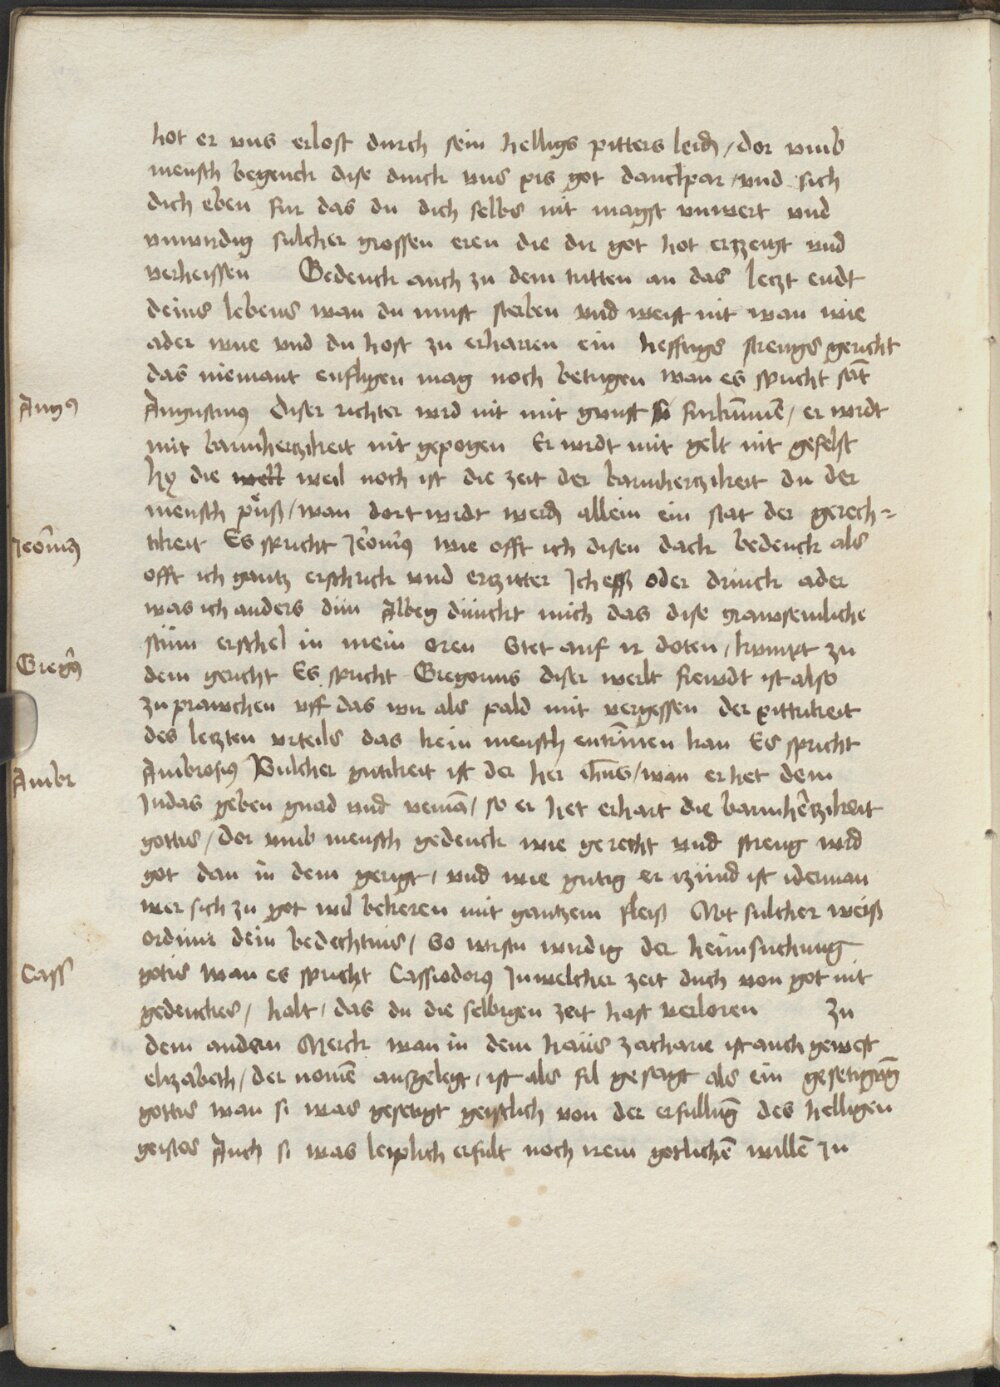 hot er vns erlost durch sein helligs pitters leidn / dor vmb
mensch begenck dise dinck vns pis got danckpar / vnd sich
dich eben fur das du dich selbs nit magst vnwert vnd
vnwirdig sulcher grossen eren die dir got hot erzeigt vnd
verheissen Gedenck auch zu dem tritten an das leczt endt
deins lebens wan du must sterben vnd weist nit wan wie
ader wue vnd du host zu erharren ein hefftigs strengs gericht
das niemant enflihen mag noch betrigen wan es spricht sāt
Augꝰ
Augustinus diser richter wird nit mit gunst furkūmē / er wirdt
mit barmherczikeit nit gepogen Er wirdt mit gelt nit gefelst
hy die wett weil noch ist die zeit der barmherczikeit du der
mensch puͤß / wan dort wirdt werdn allein ein stat der gerech=
Jeōnimꝰ
tikeit Es spricht Jeōnimꝰ wie offt ich disen dack bedenck als
offt ich gantz erschrick vnd erzitter Ich eß oder drinck ader
was ich anders dün Albeg dünckt mich das dise grawsemliche
stim erschel in mein oren Stet auf ir doten / kumpt zu
Gregꝰ
dem gericht Es spricht Gregorius diser werlt frewdt ist also
zu prawchen vff das wir als pald nit vergessen der pittrikeit
des letzten vrteils das kein mensch entrīnen kan Es spricht
Ambr
Ambrosiꝰ Wulcher gutikeit ist der her ihūs / wan er het dem
Judas geben gnad vnd veniā / so er het erhart die barmherczikeit
gottis / der vmb mensch gedenck wie gerecht vnd streng wird
got dan in dem gerigt / vnd wie gutig er iczund ist iderman
wer sich zu got wil bekeren mit gantzem fleiß Mit sulcher weiß
ordinir dein bedechtnis / So wirstu wirdig der heimsuchung
Cass
gotis wan es spricht Cassiodorꝰ In welcher zeit duch von got nit
gedenckes / halt / das du die selbigen zeit hast verloren zu
dem andern Merck wan in dem haüs zacharie ist auch gewest
elizabeth / der nomē ausgelegt / ist als fil gesagt als ein gesetigūg
gottis wan si was gesetigt geistlich von der erfullūg des helligen
geistes Auch si was leiplich erfult noch irem gotlichē willē In